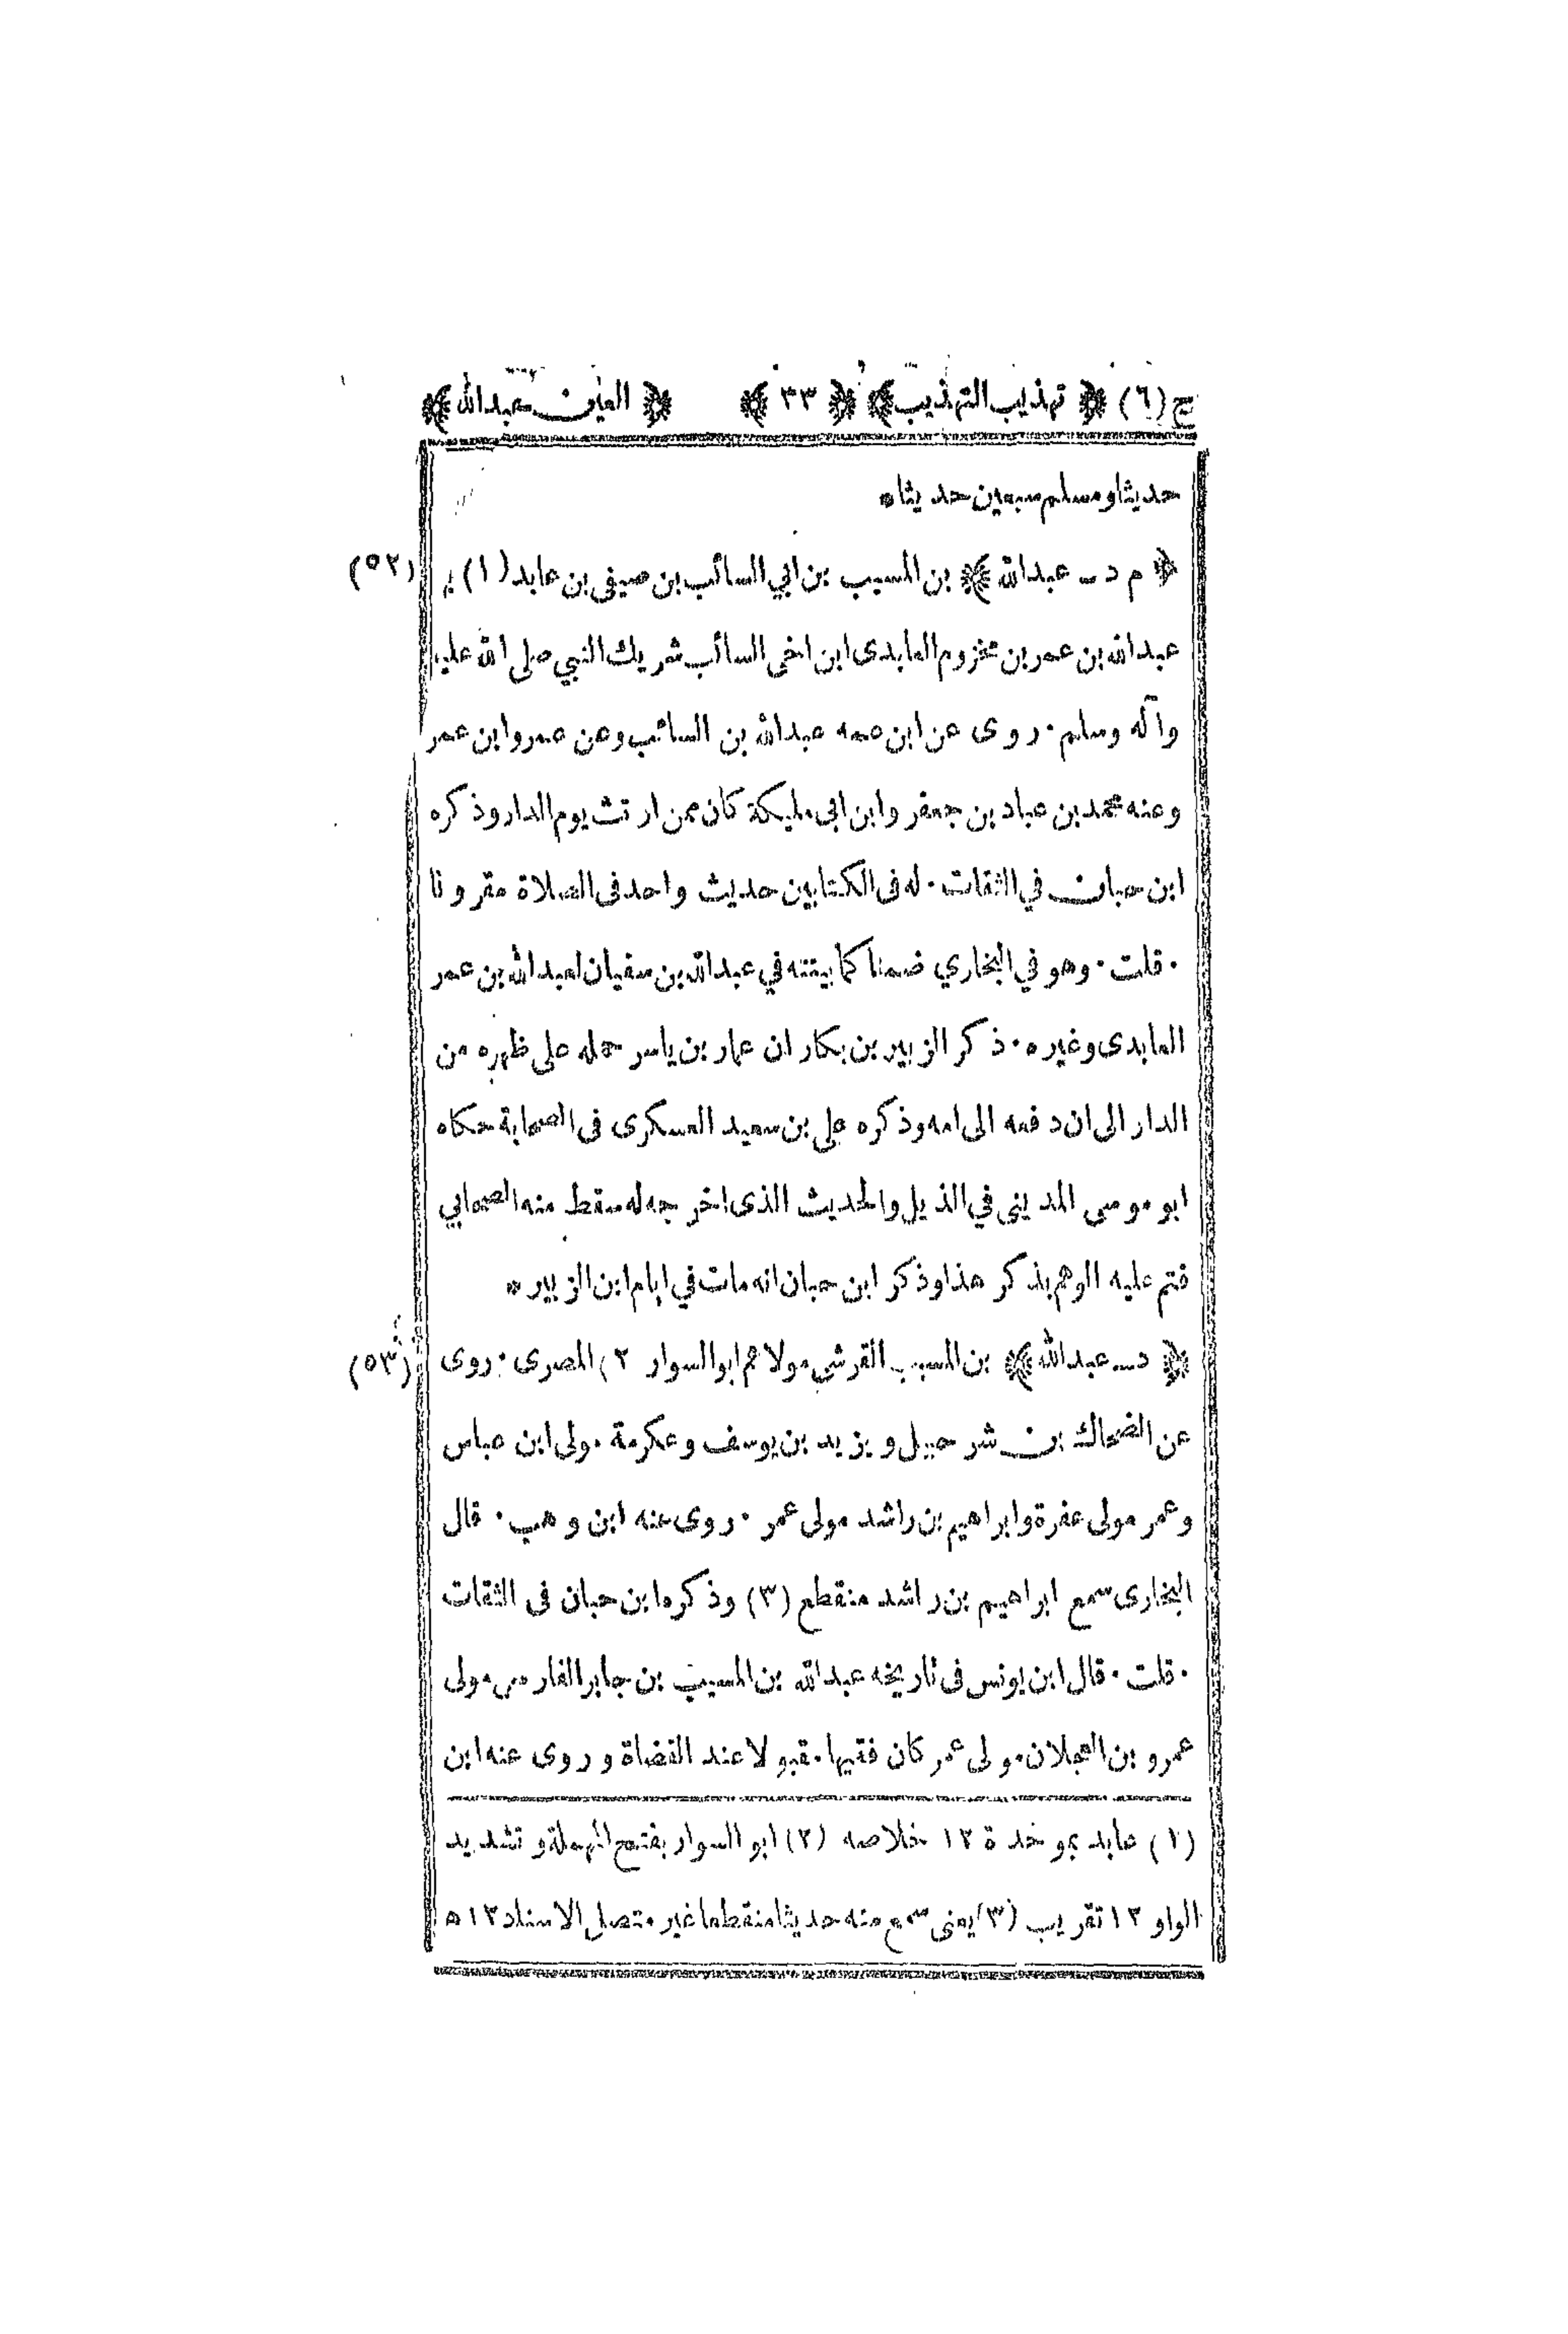 ج (٦) ﴿ تهذيب التهذيب ﴾ ﴿ ٣٣ ﴾ ﴿ العين۔عبدالله ﴾
حديثا ومسلم سبعين حديثا *
(٥٢) ﴿ م د ـ عبدالله ﴾ بن المسيب بن ابي السائب بن صيفى بن عابد (١) بن
عبدالله بن عمر بن مخزوم العابدى ابن اخى السائب شريك النبي صلى الله عليه
وآله وسلم · روى عن ابن عمه عبدالله بن السائب وعن عمر وابن عمر
وعنه محمد بن عباد بن جعفر وابن ابى مليكة كان ممن ارتث يوم الدار وذكره
ابن حبان في الثقات · له فى الكتابين حديث واحد فى الصلاة مقرونا
· قلت · وهو في البخاري ضمنا كما بينته في عبدالله بن سفيان لعبدالله بن عمر
العابدى وغيره · ذكر الزبير بن بكار ان عمار بن ياسر حمله على ظهره من
الدار الى ان دفعه الى امه وذكره على بن سعيد العسكرى فى الصحابة حكاه
ابو موسى المدينى في الذيل والحديث الذى اخرجه له سقط منه الصحابي
فتم عليه الوهم بذكر هذا وذكر ابن حبان انه مات في ايام ابن الزبير *
(٥٣) ﴿ د ـ عبدالله ﴾ بن المسيب القرشي مولاهم ابو السوار ٢) المصرى · روى
عن الضحاك بن شرحبيل ويزيد بن يوسف وعكرمة مولى ابن عباس
وعمر مولى عفرة وابراهيم بن راشد مولى عمر · روى عنه ابن وهب · قال
البخارى سمع ابراهيم بن راشد منقطع (٣) وذكره ابن حبان فى الثقات
· قلت · قال ابن يونس فى تاريخه عبدالله بن المسيب بن جابر الفارسى مولى
عمرو بن العجلان مولى عمر كان فقيها مقبولا عند القضاة وروى عنه ابن
(١) عابد بموحدة ١٢ خلاصه (٢) ابو السوار بفتح المهملة وتشديد
الواو ١٢ تقريب (٣) يعنى سمع منه حديثا منقطعا غير متصل الاسناد ١٢ *